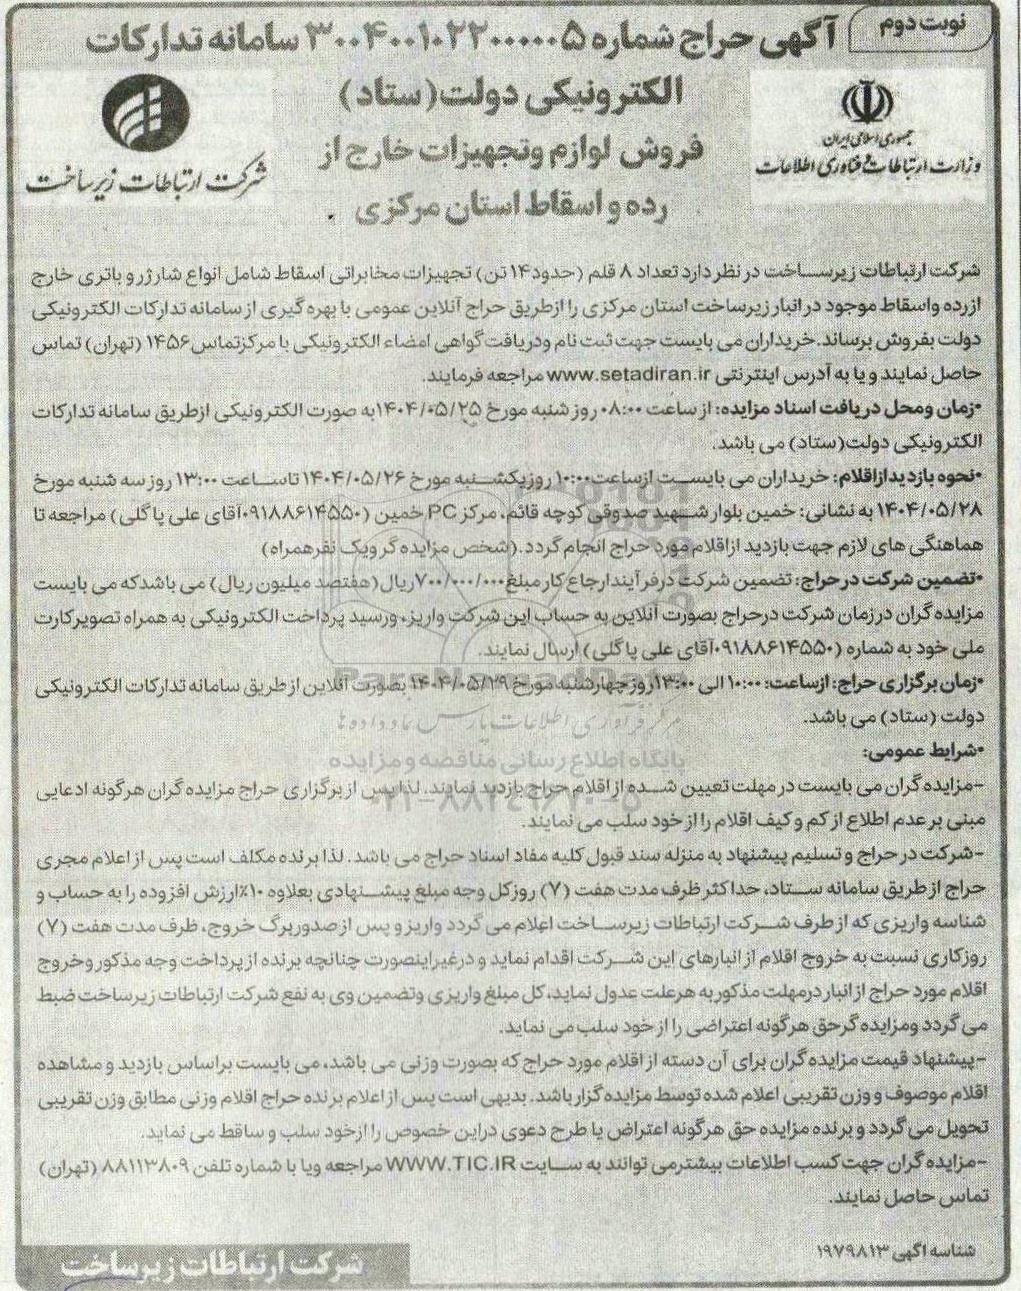 نوبت دوم
آگهی حراج شماره ۳۰۰۴۰۰۱۰۲۲۰۰۰۰۰۵ سامانه تدارکات
الکترونیکی دولت(ستاد)
فروش لوازم وتجهیزات خارج از
رده و اسقاط استان مرکزی
جمهوری اسلامی ایران
وزارت ارتباطات و فناوری اطلاعات
شرکت ارتباطات زیرساخت
شرکت ارتباطات زیرساخت در نظر دارد تعداد ۸ قلم (حدود۱۴ تن) تجهیزات مخابراتی اسقاط شامل انواع شارژر و باتری خارج
ازرده واسقاط موجود در انبار زیرساخت استان مرکزی را ازطریق حراج آنلاین عمومی با بهره گیری از سامانه تدارکات الکترونیکی
دولت بفروش برساند.خریداران می بایست جهت ثبت نام ودریافت گواهی امضاء الکترونیکی با مرکزتماس۱۴۵۶ (تهران) تماس
حاصل نمایند و یا به آدرس اینترنتی www.setadiran.ir مراجعه فرمایند.
•زمان ومحل دریافت اسناد مزایده: از ساعت ۰۸:۰۰ روز شنبه مورخ ۱۴۰۴/۰۵/۲۵به صورت الکترونیکی ازطریق سامانه تدارکات
الکترونیکی دولت(ستاد) می باشد.
•نحوه بازدیدازاقلام: خریداران می بایست ازساعت۱۰:۰۰ روزیکشنبه مورخ ۱۴۰۴/۰۵/۲۶ تاساعت ۱۳:۰۰ روز سه شنبه مورخ
۱۴۰۴/۰۵/۲۸ به نشانی: خمین بلوار شهید صدوقی کوچه قائم، مرکز PC خمین (۰۹۱۸۸۶۱۴۵۵۰آقای علی پاگلی) مراجعه تا
هماهنگی های لازم جهت بازدید ازاقلام مورد حراج انجام گردد.(شخص مزایده گر ویک نفرهمراه)
•تضمین شرکت در حراج: تضمین شرکت درفرآیندارجاع کار مبلغ ۷۰۰/۰۰۰/۰۰۰ریال(هفتصد میلیون ریال) می باشدکه می بایست
مزایده گران در زمان شرکت درحراج بصورت آنلاین به حساب این شرکت واریز، ورسید پرداخت الکترونیکی به همراه تصویر کارت
ملی خود به شماره (۰۹۱۸۸۶۱۴۵۵۰آقای علی پاگلی) ارسال نمایند.
•زمان برگزاری حراج: ازساعت: ۱۰:۰۰ الی ۱۳:۰۰روزچهارشنبه مورخ ۱۴۰۴/۰۵/۲۹ بصورت آنلاین از طریق سامانه تدارکات الکترونیکی
دولت (ستاد) می باشد.
مرکز فرآوری اطلاعات پارس نماد داده ها
•شرایط عمومی:
پایگاه اطلاع رسانی مناقصه و مزایده
-مزایده گران می بایست در مهلت تعیین شده از اقلام حراج بازدید نمایند. لذا پس از برگزاری حراج مزایده گران هرگونه ادعایی
مبنی بر عدم اطلاع از کم و کیف اقلام را از خود سلب می نمایند.
-شرکت در حراج و تسلیم پیشنهاد به منزله سند قبول کلیه مفاد اسناد حراج می باشد. لذا برنده مکلف است پس از اعلام مجری
حراج از طریق سامانه ستاد، حداکثر ظرف مدت هفت (۷) روزکل وجه مبلغ پیشنهادی بعلاوه ۱۰٪ارزش افزوده را به حساب و
شناسه واریزی که از طرف شرکت ارتباطات زیرساخت اعلام می گردد واریز و پس از صدوربرگ خروج، ظرف مدت هفت (۷)
روزکاری نسبت به خروج اقلام از انبارهای این شرکت اقدام نماید و درغیراینصورت چنانچه برنده از پرداخت وجه مذکور وخروج
اقلام مورد حراج از انبار درمهلت مذکور به هرعلت عدول نماید، کل مبلغ واریزی وتضمین وی به نفع شرکت ارتباطات زیرساخت ضبط
می گردد ومزایده گرحق هرگونه اعتراضی را از خود سلب می نماید.
-پیشنهاد قیمت مزایده گران برای آن دسته از اقلام مورد حراج که بصورت وزنی می باشد، می بایست براساس بازدید و مشاهده
اقلام موصوف و وزن تقریبی اعلام شده توسط مزایده گزار باشد. بدیهی است پس از اعلام برنده حراج اقلام وزنی مطابق وزن تقریبی
تحویل می گردد و برنده مزایده حق هرگونه اعتراض یا طرح دعوی دراین خصوص را ازخود سلب و ساقط می نماید.
-مزایده گران جهت کسب اطلاعات بیشترمی توانند به سایت WWW.TIC.IR مراجعه ویا با شماره تلفن ۸۸۱۱۳۸۰۹ (تهران)
تماس حاصل نمایند.
شناسه آگهی ۱۹۷۹۸۱۳
شرکت ارتباطات زیرساخت